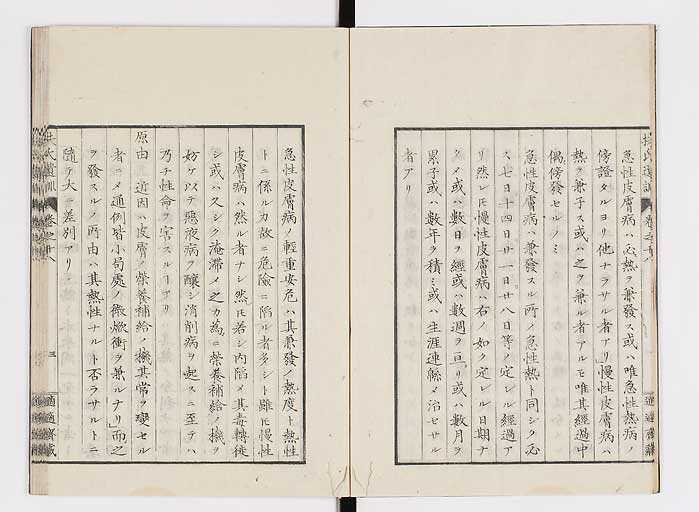 急性皮膚病ハ必熱ヲ兼發ス或ハ唯急性熱病ノ
傍證タルヨリ他ナラサル者アリ」慢性皮膚病ハ
熱ヲ兼子ス或ハ之ヲ兼ル者アルモ唯其經過中
偶傍發セルノミ
急性皮膚病ハ兼發スル所ノ急性熱ト同シク必
ス七日十四日廿一日廿八日等ノ定レル經過ア
リ然レ𪜈慢性皮膚病ハ右ノ如ク定レル日期ナ
クメ或ハ數日ヲ經或ハ數週ヲ亘リ或ハ數月ヲ
累子或ハ數年ヲ積ミ或ハ生涯連緜ノ治セサル
者アリ
急性皮膚病ノ輕重安危ハ其兼發ノ熱度ト熱性
トニ係ルカ故ニ危險ニ陷ル者多シト雖𪜈慢性
皮膚病ハ然ル者ナシ然𪜈若シ內陷メ其毒轉徙
シ或ハ久シク淹滯メ之カ為ニ榮養補給ノ機ヲ
妨ケ以テ惡液病ヲ釀シ消削病ヲ起スニ至テハ
乃チ性命ヲ害スル
原由 近因ハ皮膚ノ榮養補給ノ機其常ヲ變セル
者ニメ通例皆小局處ノ微焮衝ヲ兼ルナリ」而之
ヲ發スルノ所由ハ其熱性ナルト否ラサルトニ
隨テ大ニ差別アリ
氏遺訓
卷之十八
三
適適齋藏